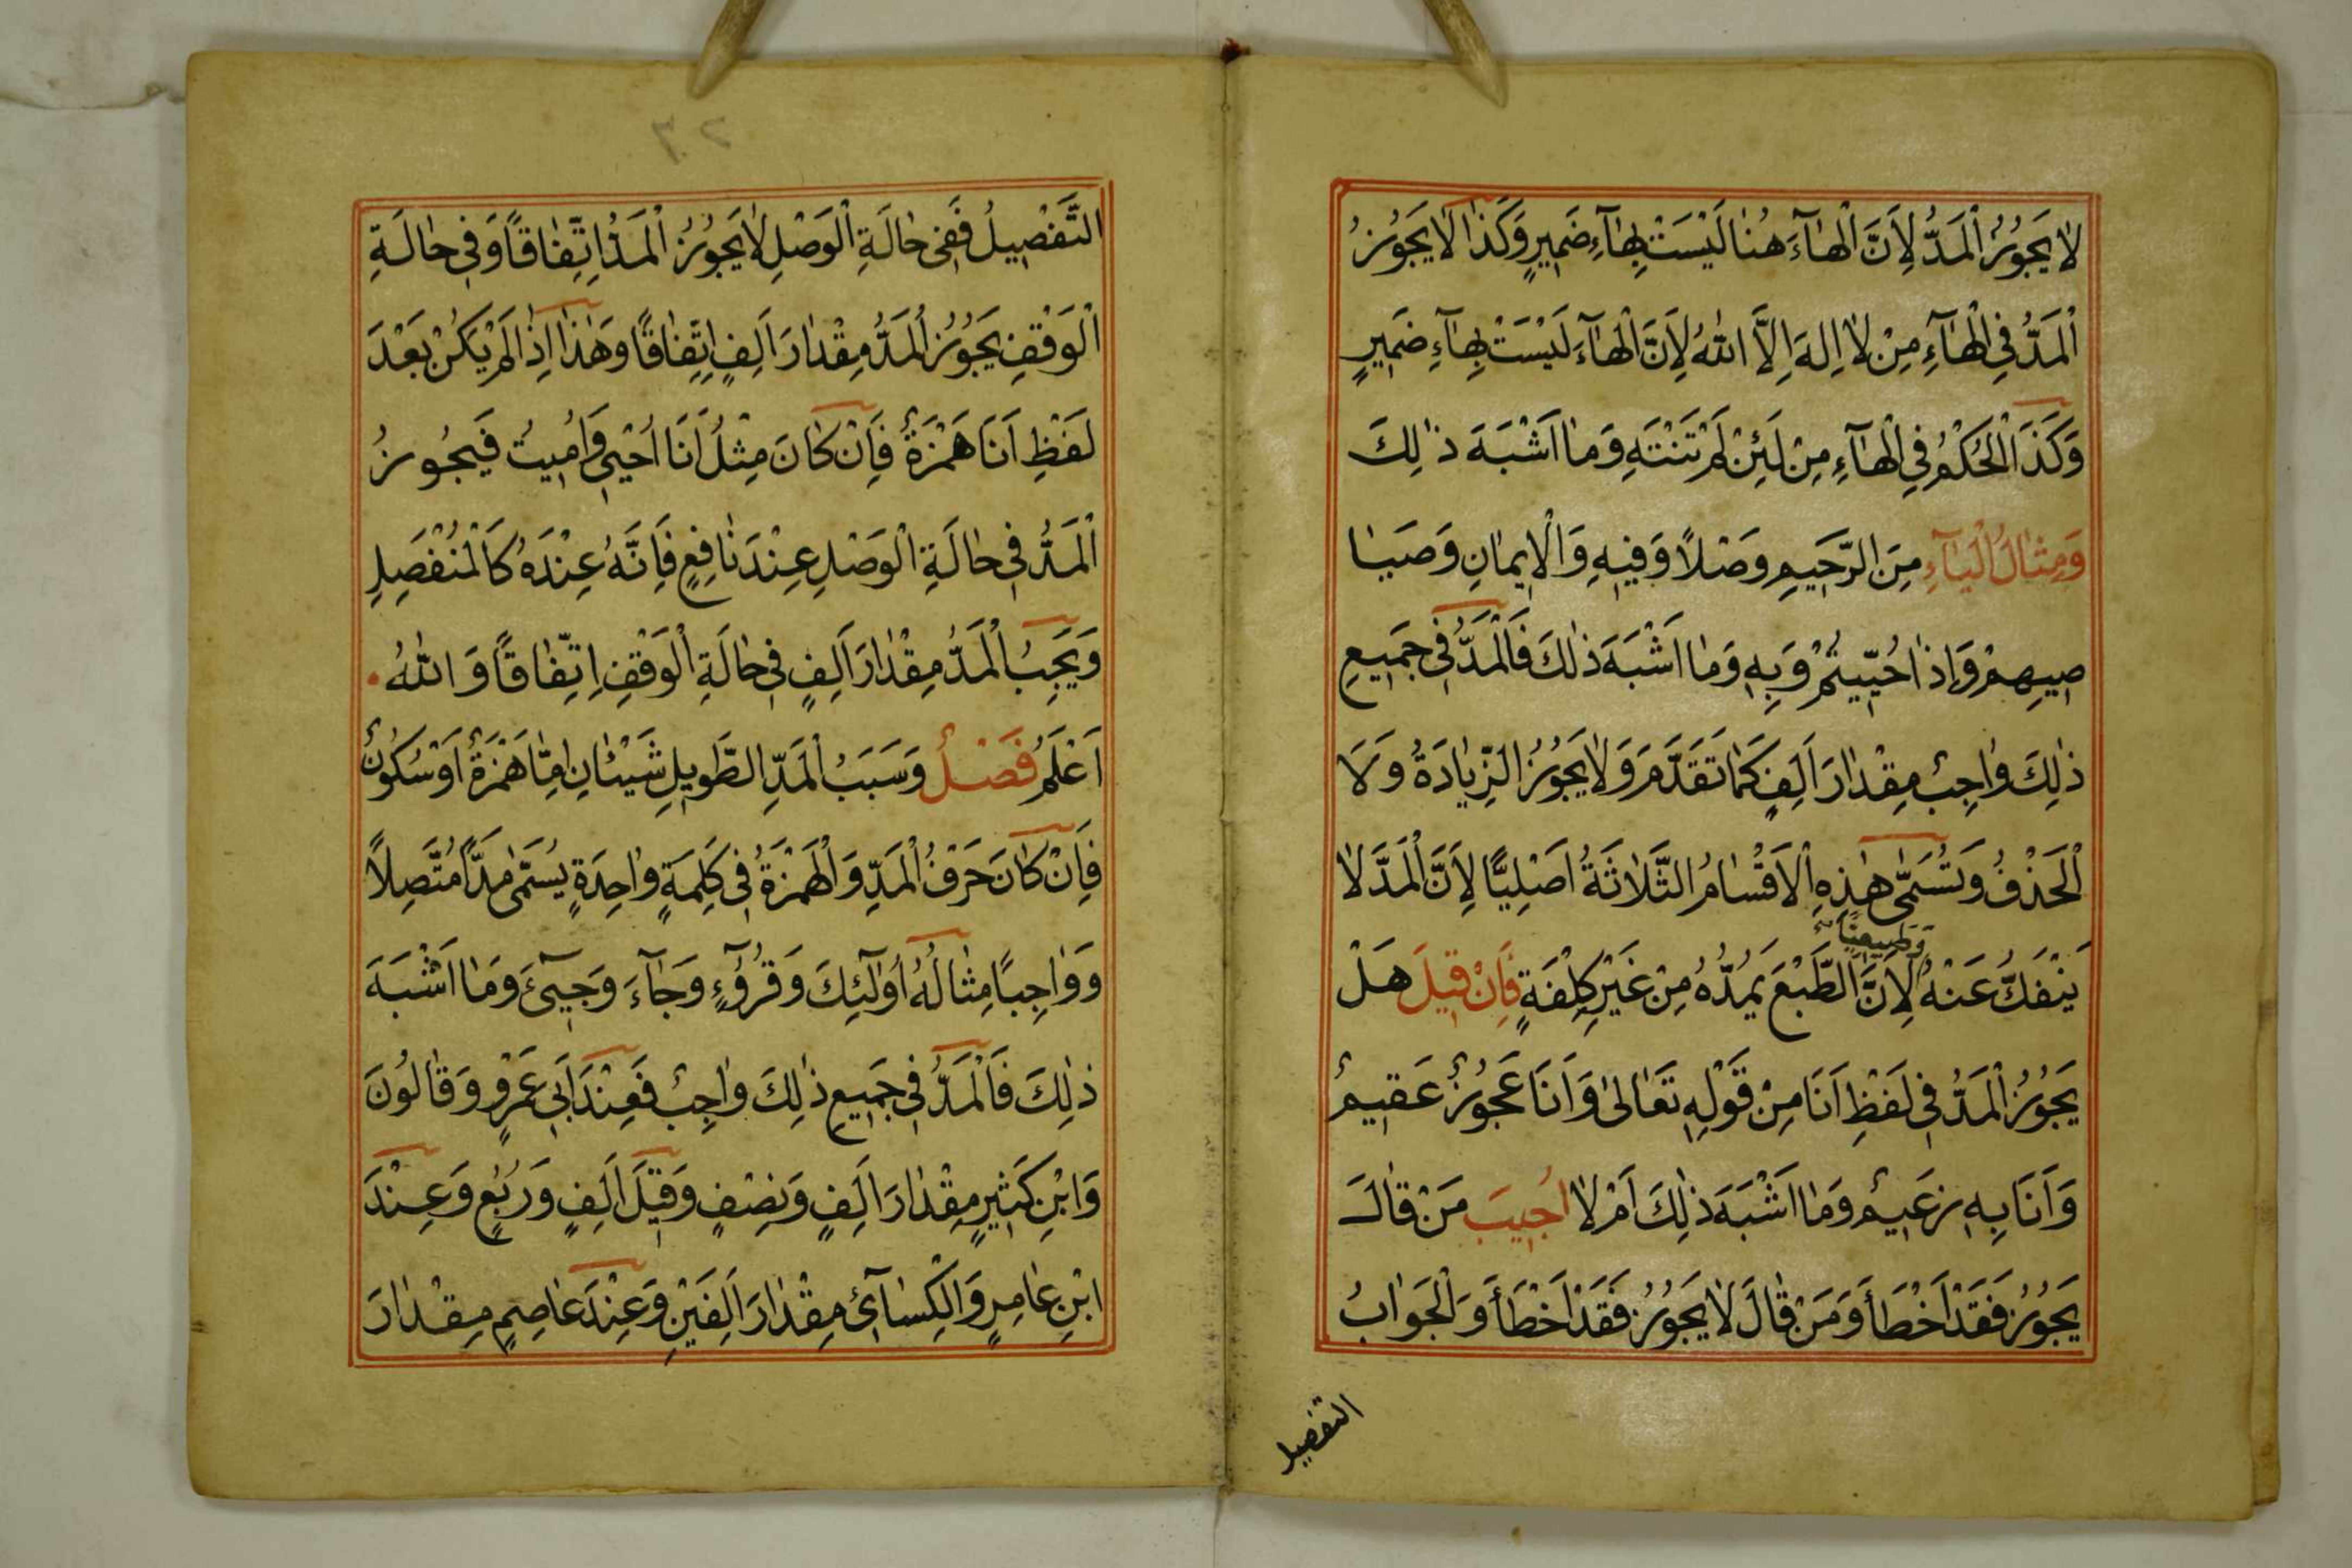 لَا يَجُوزُ الْمَدُّ لِاَنَّ الْهَاۤءَ هُنَا لَيْسَتْ بِهَاۤءِ ضَمِيرٍ وَكَذَا لَا يَجُوزُ
الْمَدُّ فِي الْهَاۤءِ مِنْ لَا اِلٰهَ اِلَّا اللّٰهُ لِاَنَّ الْهَاۤءَ لَيْسَتْ بِهَاۤءِ ضَمِيرٍ
وَكَذَا الْحُكْمُ فِي الْهَاۤءِ مِنْ لَئِنْ لَمْ تَنْتَهِ وَمَا اَشْبَهَ ذٰلِكَ
وَمِثَالُ الْيَاۤءِ مِنَ الرَّحِيمِ وَصْلًا وَفِيهِ وَالْاِيمَانِ وَصَيَا
صِيهِمْ وَاِذَا حُيِّيتُمْ وَبِهِ وَمَا اَشْبَهَ ذٰلِكَ فَالْمَدُّ فِي جَمِيعِ
ذٰلِكَ وَاجِبٌ مِقْدَارَ اَلِفٍ كَمَا تَقَدَّمَ وَلَا يَجُوزُ الزِّيَادَةُ وَلَا
الْحَذْفُ وَتُسَمّٰى هٰذِهِ الْاَقْسَامُ الثَّلَاثَةُ اَصْلِيًّا لِاَنَّ الْمَدَّ لَا
وَطَبِيعِيًّا
يَنْفَكُّ عَنْهُ لِاَنَّ الطَّبْعَ يَمُدُّهُ مِنْ غَيْرِ كِلْفَةٍ فَاِنْ قِيلَ هَلْ
يَجُوزُ الْمَدُّ فِي لَفْظِ اَنَا مِنْ قَوْلِهِ تَعَالٰى وَاَنَا عَجُوزٌ عَقِيمٌ
وَاَنَا بِهِ زَعِيمٌ وَمَا اَشْبَهَ ذٰلِكَ اَمْ لَا اُجِيبَ مَنْ قَالَ
يَجُوزُ فَقَدْ اَخْطَأَ وَمَنْ قَالَ لَا يَجُوزُ فَقَدْ اَخْطَأَ وَالْجَوَابُ
التفصيل
٢٦
التَّفْصِيلُ فَفِي حَالَةِ الْوَصْلِ لَا يَجُوزُ الْمَدُّ اِتِّفَاقًا وَفِي حَالَةِ
الْوَقْفِ يَجُوزُ الْمَدُّ مِقْدَارَ اَلِفٍ اِتِّفَاقًا وَهٰذَا اِذَا لَمْ يَكُنْ بَعْدَ
لَفْظِ اَنَا هَمْزَةٌ فَاِنْ كَانَ مِثْلُ اَنَا اُحْيِي وَاُمِيتُ فَيَجُوزُ
الْمَدُّ فِي حَالَةِ الْوَصْلِ عِنْدَ نَافِعٍ فَاِنَّهُ عِنْدَهُ كَالْمُنْفَصِلِ
وَيَجِبُ الْمَدُّ مِقْدَارَ اَلِفٍ فِي حَالَةِ الْوَقْفِ اِتِّفَاقًا وَاللّٰهُ
اَعْلَمُ فَصْلٌ وَسَبَبُ الْمَدِّ الطَّوِيلِ شَيْئَانِ اِمَّا هَمْزَةٌ اَوْ سُكُونٌ
فَاِنْ كَانَ حَرْفُ الْمَدِّ وَالْهَمْزَةُ فِي كَلِمَةٍ وَاحِدَةٍ يُسَمّٰى مَدًّا مُتَّصِلًا
وَوَاجِبًا مِثَالُهُ اُولٰۤئِكَ وَقُرُوۤءٍ وَجَاۤءَ وَجِيۤءَ وَمَا اَشْبَهَ
ذٰلِكَ فَالْمَدُّ فِي جَمِيعِ ذٰلِكَ وَاجِبٌ فَعِنْدَ اَبِي عَمْرٍو وَقَالُونَ
وَابْنِ كَثِيرٍ مِقْدَارَ اَلِفٍ وَنِصْفٍ وَقِيلَ اَلِفٍ وَرُبْعٍ وَعِنْدَ
ابْنِ عَامِرٍ وَالْكِسَاۤئِي مِقْدَارَ اَلِفَيْنِ وَعِنْدَ عَاصِمٍ مِقْدَارَ